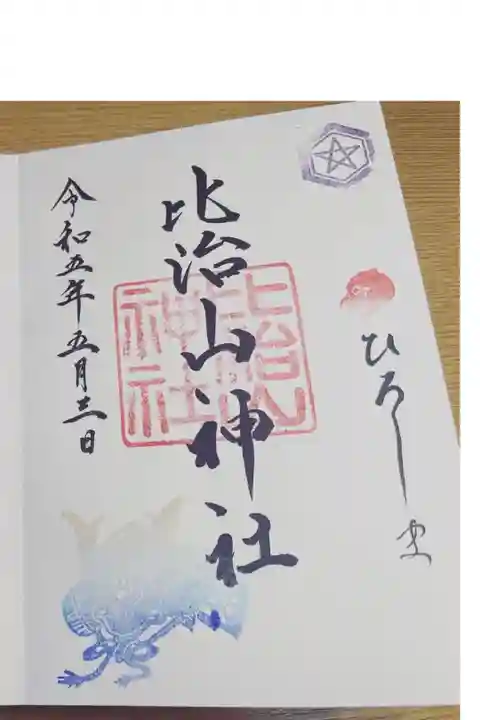 ひろしま
比治山神社
比治山神社
令和五年五月三日